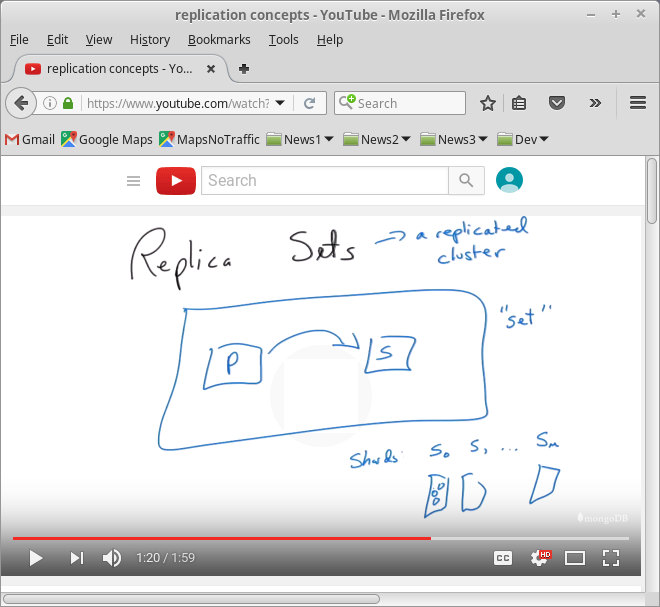 replication concepts - YouTube - Mozilla Firefox
File Edit View History Bookmarks Tools Help
replication concepts - Yo...
https://www.youtube.com/watch?
Search
Gmail Google Maps MapsNoTraffic News1 News2 News3 Dev
Search
Replica Sets → a replicated
cluster
"set"
P S
Shards: S0 S1 ... Sn
mongoDB
1:20 / 1:59
CC HD